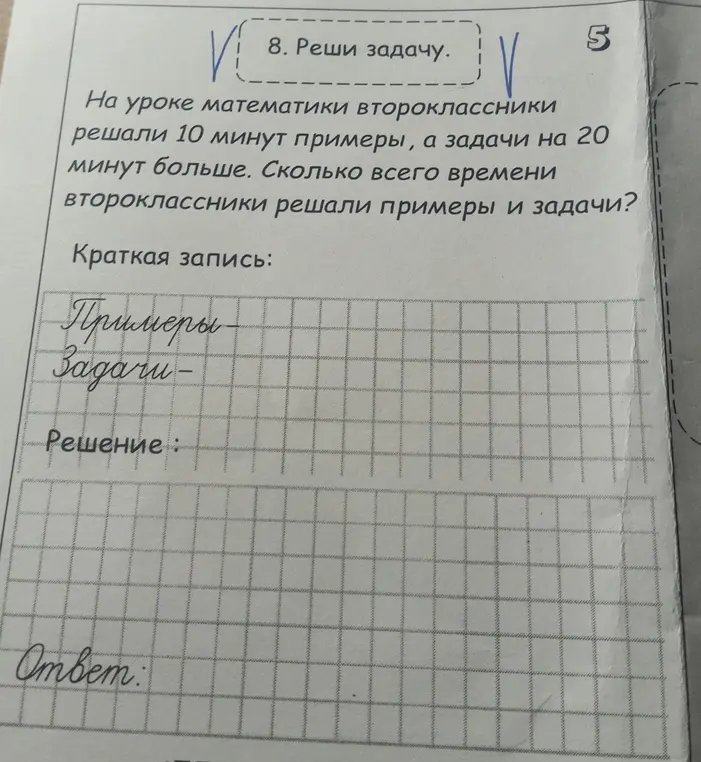 8. Реши задачу.
5
На уроке математики второклассники
решали 10 минут примеры, а задачи на 20
минут больше. Сколько всего времени
второклассники решали примеры и задачи?
Краткая запись:
Примеры –
Задачи –
Решение :
Ответ: